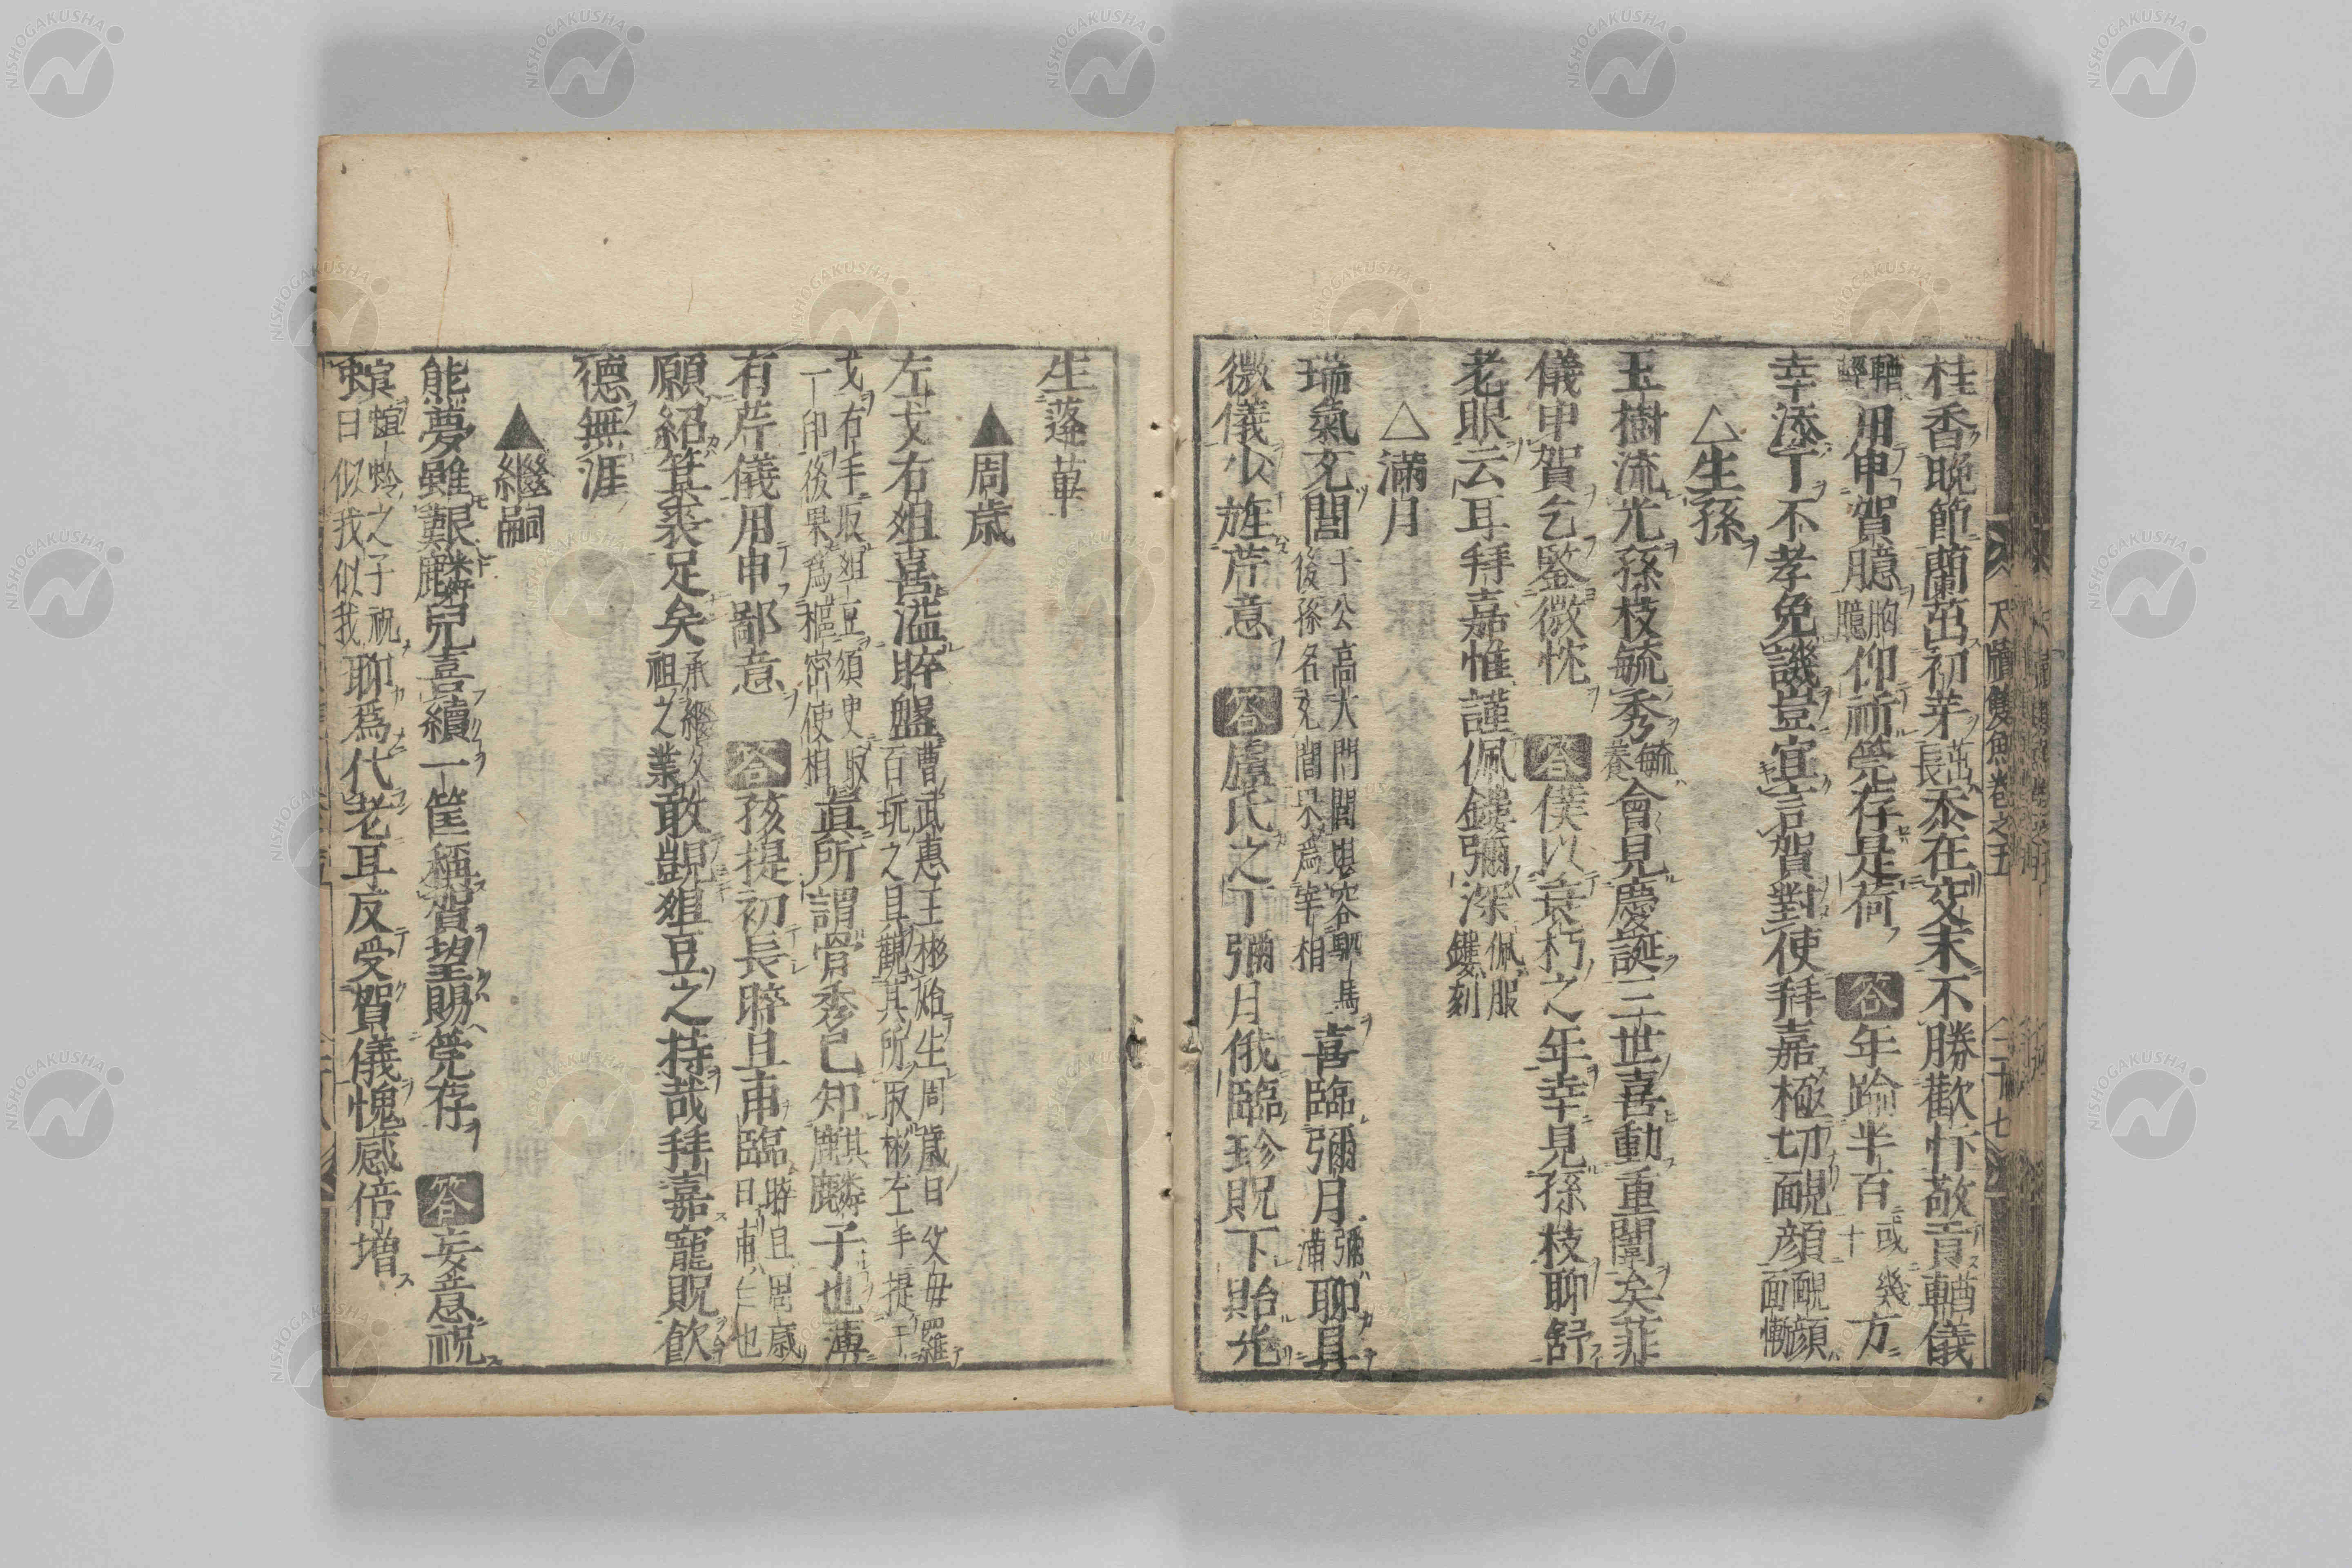 桂香晩節蘭茁初芽茁長忝在交末不勝歡忭敬肯輶儀
輶輕用申賀臆胸臆仰祈莞存是荷答年踰半百或幾十方
幸添丁不孝免譏豈宜言賀對使拜嘉極切靦顔靦顔面慚
△生孫
玉樹流光孫枝毓秀毓養會見慶誕三世喜動重闈矣菲
儀申賀乞鑒微忱答僕以衰朽之年幸見孫枝聊舒
老眼云耳拜嘉惟謹佩鏤彌深佩服鏤刻
△滿月
瑞氣充閭于公高大門閭堪容駟馬後孫名充閭果爲宰相喜臨彌月彌滿聊具
微儀少旌芹意答盧氏之丁彌月俄臨珍貺下貽光
尺牘雙魚卷之五
二十七
生蓬蓽
▲周歳
左戈右俎喜溢晬盤曹武惠王彬始生周歳日父母羅百玩之具觀其所取彬左手提干
戈右手取俎豆須臾取一印後果爲樞密使相眞所謂骨秀已知麒麟子也薄
有芹儀用申鄙意答孩提初長晬且甫臨晬且周歳日甫生也
願紹箕裘足矣承繼父祖之業敢覬俎豆之持哉拜嘉寵貺飲
德無涯
▲繼嗣
能夢雖艱麟兒喜續一筐稱賀望賜莞存答妄意祝
螟螟蛉之子祝曰似我似我聊爲代老耳反受賀儀愧感倍増